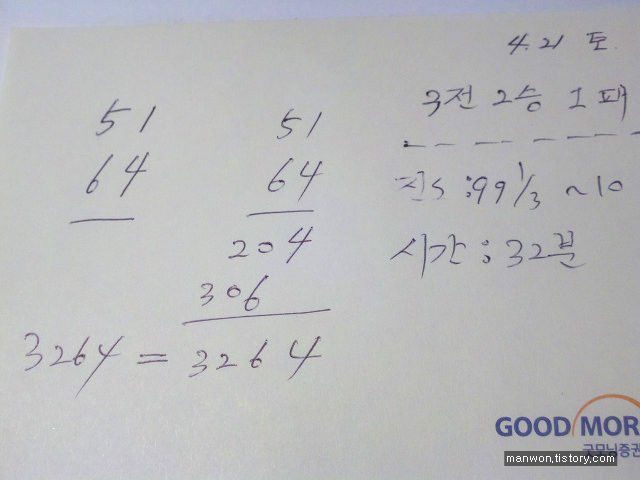 4.21 토.
3전 2승 1패
51
64
51
64
204
306
3264 = 3264
:99 1/3 ~10
시간 : 32분
GOOD MOR
굿모닝증권
manwon.tistory.com